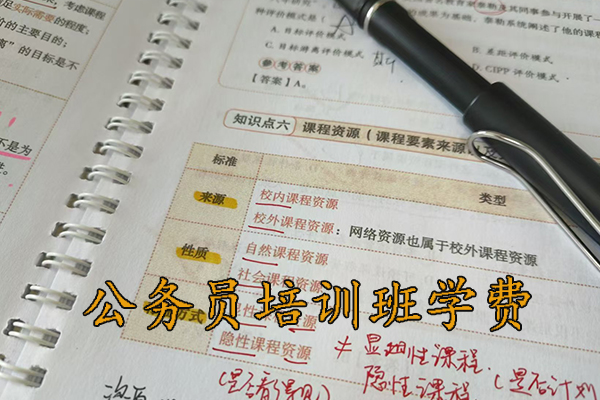 考虑课程
足实际需要的程度;
价的主要目的;
离”的目标是不
不是为
种评价模式是(
A. 目标评价模式
B. 差距评价模式
C. 目标游离评价模式
D. CIPP 评价模式
参考答案
【答案】A。
知识点六
课程资源(课程要素来源
标准
类型
来源
校内课程资源
校外课程资源:网络资源也属于校外课程资源
性质
自然课程资源
社会课程资源
方式
隐性课程资源
公务员培训班学费
显性课程
隐性课程 (是否计划